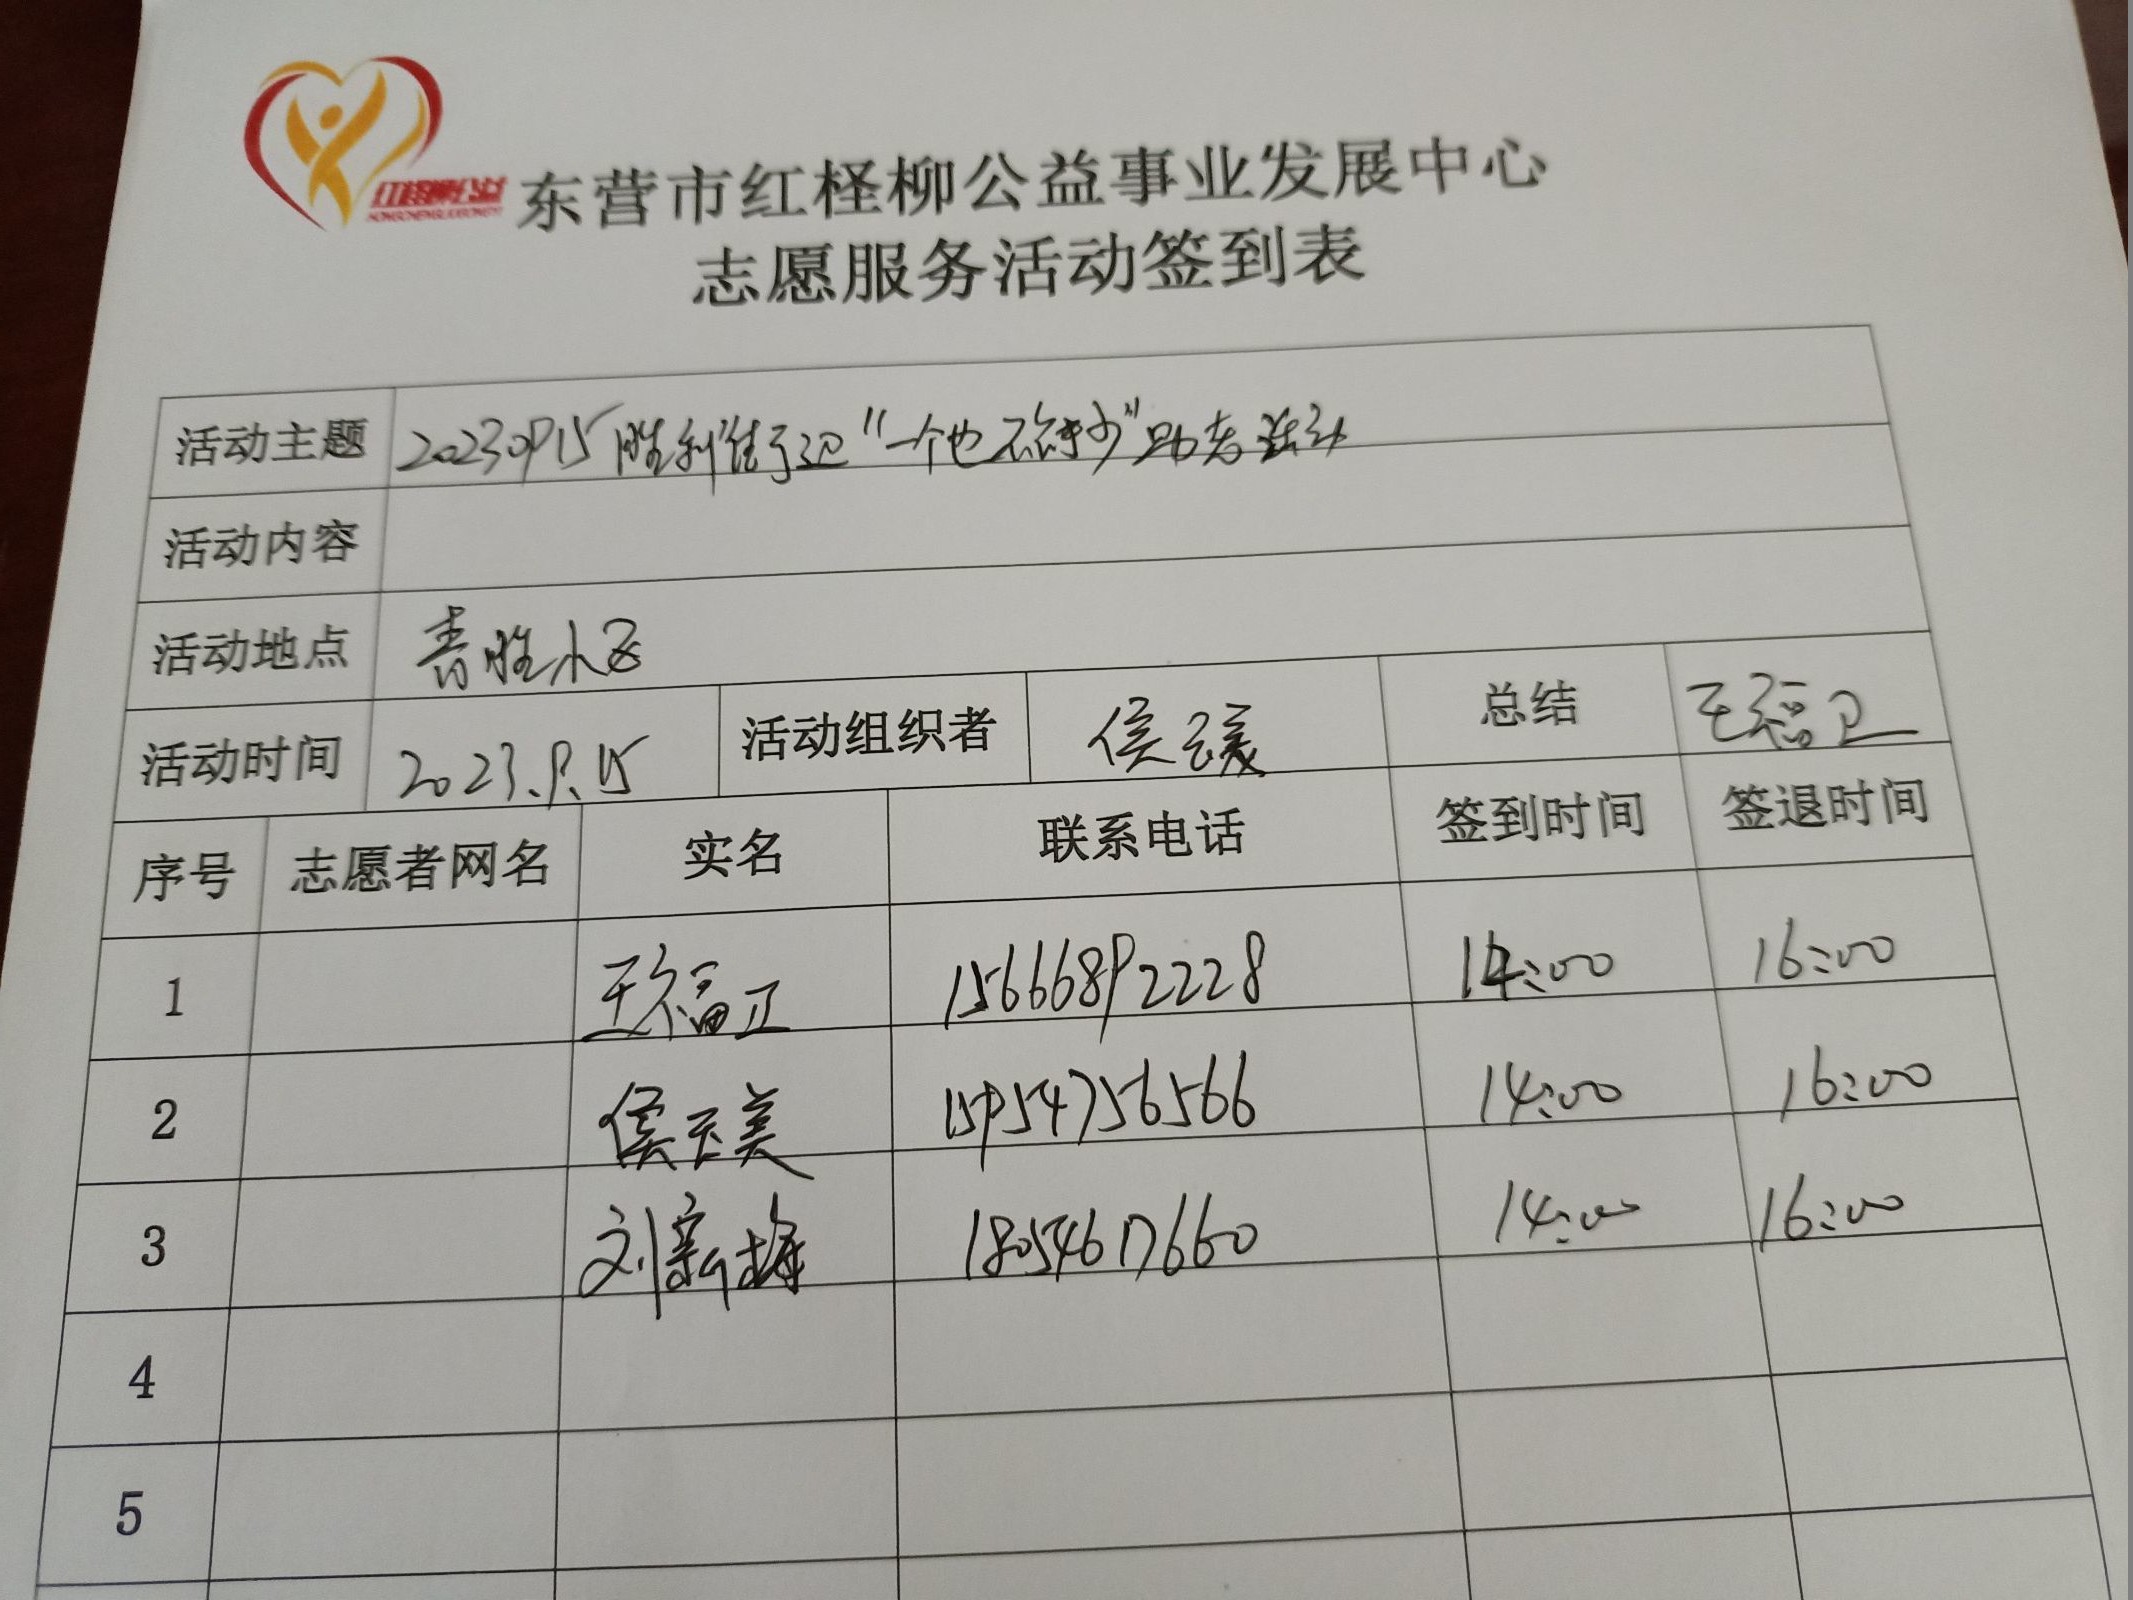 红柽柳公益
HONGCHENGLIUGONGYI
东营市红柽柳公益事业发展中心
志愿服务活动签到表
活动主题 20230915胜利街道"一个也不能少"助老活动
活动内容
活动地点 青胜小区
活动时间 2023.9.15 活动组织者 侯玉美 总结 王福卫
序号 志愿者网名 实名 联系电话 签到时间 签退时间
1 王福卫 15666892228 14:00 16:00
2 侯玉美 15954756566 14:00 16:00
3 刘新梅 18054617660 14:00 16:00
4
5